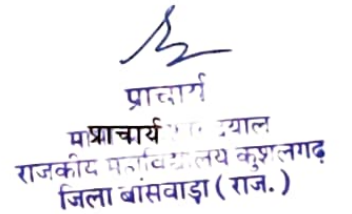 प्राचार्य
प्राचार्य
राजकीय महाविद्यालय कुशलगढ़
जिला बांसवाड़ा ( राज. )